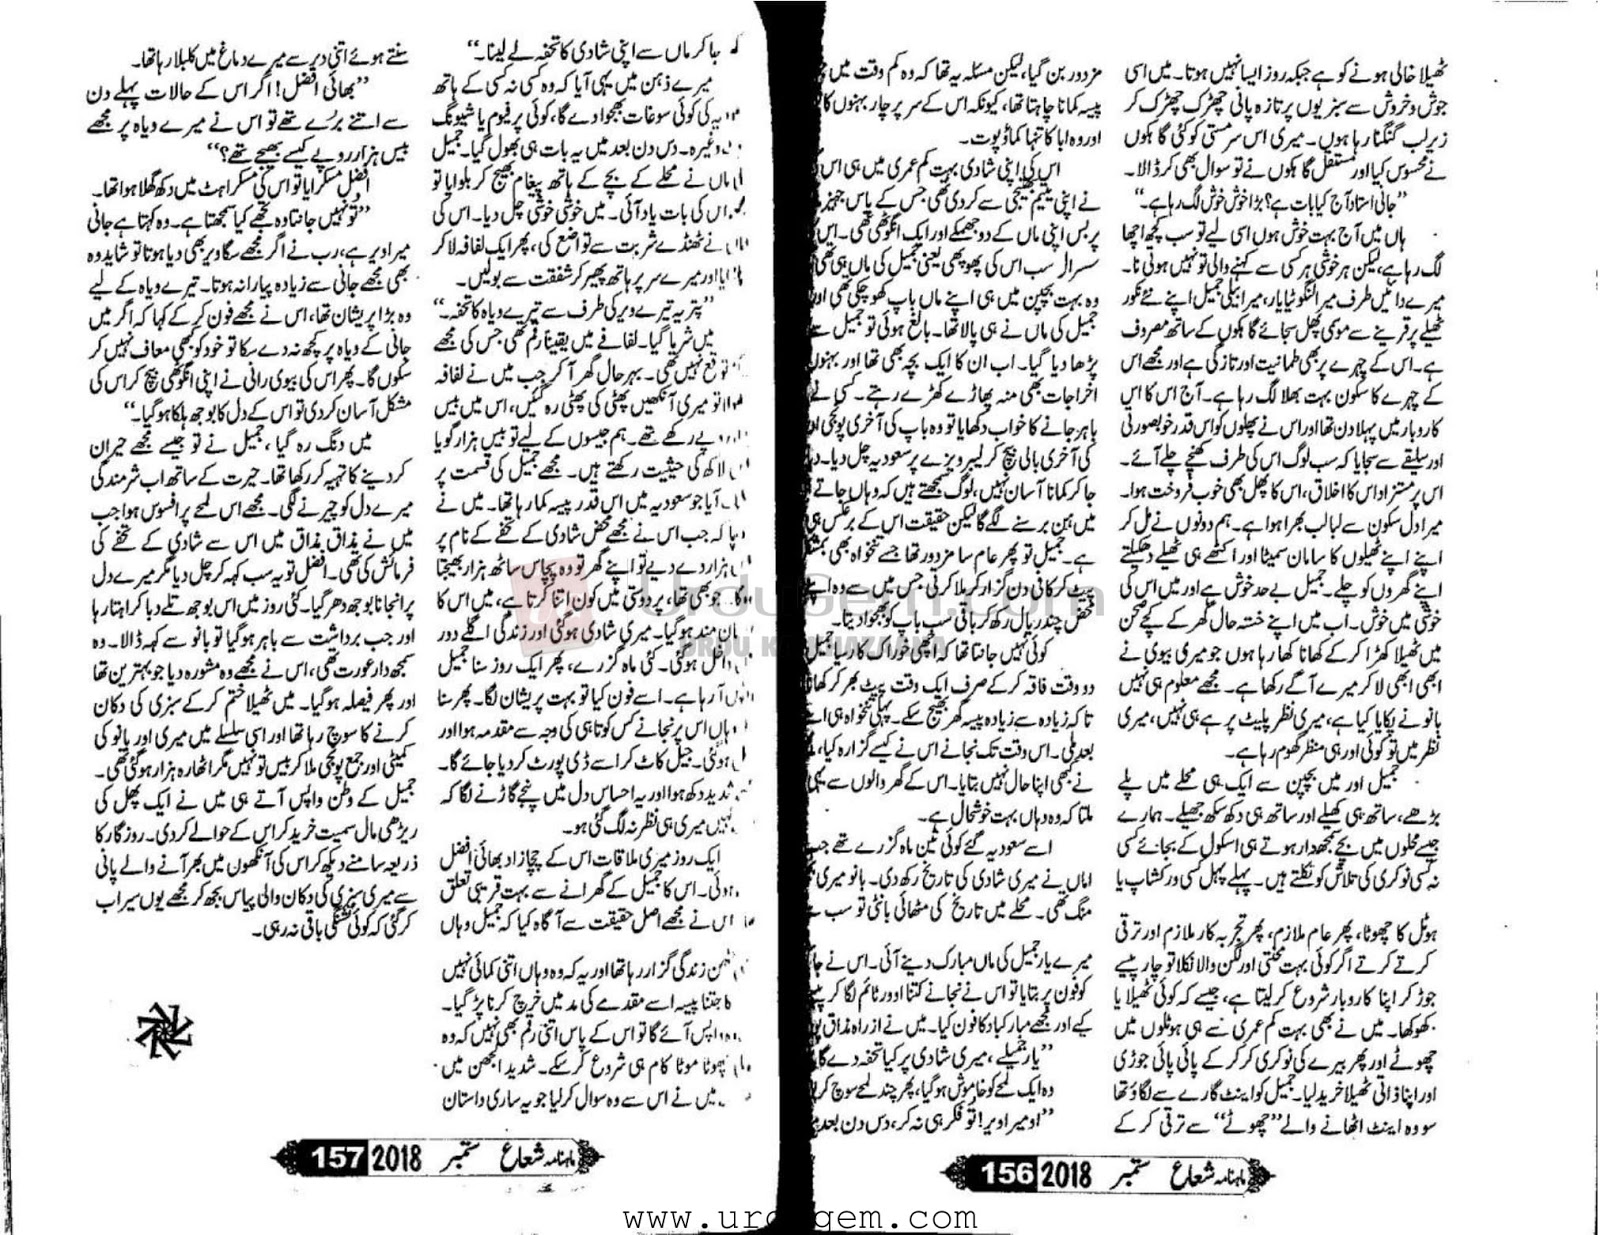 ٹھیلا خالی ہونے کو ہے جبکہ روز ایسا نہیں ہوتا۔ میں اسی
جوش و خروش سے سبزیوں پر تازہ پانی چھڑک چھڑک کر
زیر لب گنگنا رہا ہوں۔ میری اس سرمستی کو کئی گاہکوں
نے محسوس کیا اور مستقل گاہکوں نے تو سوال بھی کر ڈالا۔
”جانی استاد آج کیا بات ہے؟ بڑا خوش خوش لگ رہا ہے۔“
ہاں میں آج بہت خوش ہوں اسی لیے تو سب کچھ اچھا
لگ رہا ہے، لیکن ہر خوشی ہر کسی سے کہنے والی تو نہیں ہوتی نا۔
میرے دائیں طرف میرا لنگوٹیا یار، میرا بیلی جمیل اپنے نئے نکور
ٹھیلے پر قرینے سے موسمی پھل سجائے گاہکوں کے ساتھ مصروف
ہے۔ اس کے چہرے پر بھی طمانیت اور تازگی ہے اور مجھے اس
کے چہرے کا سکون بہت بھلا لگ رہا ہے۔ آج اس کا اس
کاروبار میں پہلا دن تھا اور اس نے پھلوں کو اس قدر خوبصورتی
اور سلیقے سے سجایا کہ سب لوگ اس کی طرف کھنچے چلے آئے۔
اس پر مستزاد اس کا اخلاق، اس کا پھل بھی خوب فروخت ہوا۔
میرا دل سکون سے لبالب بھرا ہوا ہے۔ ہم دونوں نے مل کر
اپنے اپنے ٹھیلوں کا سامان سمیٹا اور اکٹھے ہی ٹھیلے دھکیلتے
اپنے گھروں کو چلے۔ جمیل بے حد خوش ہے اور میں اس کی
خوشی میں خوش۔ اب میں اپنے خستہ حال گھر کے کچے صحن
میں ٹھیلا کھڑا کر کے کھانا کھا رہا ہوں جو میری بیوی نے
ابھی ابھی لا کر میرے آگے رکھا ہے۔ مجھے معلوم ہی نہیں
بانو نے پکایا کیا ہے، میری نظر پلیٹ پر ہے ہی نہیں، میری
نظر میں تو کوئی اور ہی منظر گھوم رہا ہے۔
جمیل اور میں بچپن سے ایک ہی محلے میں پلے
بڑھے، ساتھ ہی کھیلے اور ساتھ ہی دکھ سکھ جھیلے۔ ہمارے
جیسے محلوں میں بچے سمجھدار ہوتے ہی اسکول کے بجائے کسی
نہ کسی نوکری کی تلاش کو نکلتے ہیں۔ پہلے پہل کسی ورکشاپ یا
ہوٹل کا چھوٹا، پھر عام ملازم، پھر تجربہ کار ملازم اور ترقی
کرتے کرتے اگر کوئی بہت محنتی اور لگن والا نکلا تو چار پیسے
جوڑ کر اپنا کاروبار شروع کر لیتا ہے، جیسے کہ کوئی ٹھیلا یا
کھوکھا۔ میں نے بھی بہت کم عمری سے ہی ہوٹلوں میں
چھوٹے اور پھر بیرے کی نوکری کر کر کے پائی پائی جوڑی
اور اپنا ذاتی ٹھیلا خرید لیا۔ جمیل کو اینٹ گارے سے لگاؤ تھا
سو وہ اینٹ اٹھانے والے ”چھوٹے“ سے ترقی کر کے
مزدور بن گیا، لیکن مسئلہ یہ تھا کہ وہ کم وقت میں
پیسہ کمانا چاہتا تھا، کیونکہ اس کے سر پر چار بہنوں کا
اور وہ ابا کا تنہا کماؤ پوت۔
اس کی اپنی شادی بہت کم عمری میں ہی اس
نے اپنی یتیم بھتیجی سے کر دی تھی جس کے پاس جہیز
پر بس اپنی ماں کے دو جھمکے اور ایک انگوٹھی تھی۔ اس
سسرال سب اس کی پھوپھی یعنی جمیل کی ماں ہی تھی
وہ بہت بچپن میں ہی اپنے ماں باپ کھو چکی تھی اور
جمیل کی ماں نے ہی پالا تھا۔ بالغ ہوئی تو جمیل سے
پڑھا دیا گیا۔ اب ان کا ایک بچہ بھی تھا اور بہنوں
اخراجات بھی منہ پھاڑے کھڑے رہتے۔ کسی نے
باہر جانے کا خواب دکھایا تو وہ باپ کی آخری پونجی اور
کی آخری بالی بیچ کر لیبر ویزے پر سعودیہ چل دیا۔
جا کر کمانا آسان نہیں، لوگ سمجھتے ہیں کہ وہاں جاتے
میں ہن برسنے لگے گا لیکن حقیقت اس کے برعکس ہی
ہے۔ جمیل تو پھر عام سا مزدور تھا جسے تنخواہ بھی
پیٹ کر کافی دن گزار کر ملا کرتی جس میں سے وہ اپنے
محض چند ریال رکھ کر باقی سب باپ کو بھجوا دیتا۔
کوئی نہیں جانتا تھا کہ اچھی خوراک کا رسیا جمیل
دو وقت فاقہ کر کے صرف ایک وقت پیٹ بھر کر کھاتا
تا کہ زیادہ سے زیادہ پیسہ گھر بھیج سکے۔ پہلی تنخواہ ہی
بعد ملی۔ اس وقت تک نجانے اس نے کیسے گزارہ کیا،
نے بھی اپنا حال نہیں بتایا۔ اس کے گھر والوں سے یہی
ملتا کہ وہ وہاں بہت خوشحال ہے۔
اسے سعودیہ گئے کوئی تین ماہ گزرے تھے جب
اماں نے میری شادی کی تاریخ رکھ دی۔ بانو میری
منگ تھی۔ محلے میں تاریخ کی مٹھائی بانٹی تو سب سے
میرے یار جمیل کی ماں مبارک دینے آئی۔ اس نے
کو فون پر بتایا تو اس نے نجانے کتنا اوور ٹائم لگا کر پیسے
کیے اور مجھے مبارکباد کا فون کیا۔ میں نے ازراہ مذاق
”یار جمیلے، میری شادی پر کیا تحفہ دے گا
وہ ایک لمحے کو خاموش ہو گیا، پھر چند لمحے سوچ کر
”او میرا ویر! تو فکر ہی نہ کر، دس دن بعد
ماہنامہ شعاع ستمبر 2018 156
جا کر ماں سے اپنی شادی کا تحفہ لے لینا۔“
میرے ذہن میں یہی آیا کہ وہ کسی نہ کسی کے ہاتھ
کی کوئی سوغات بھجوا دے گا، کوئی پرفیوم یا شیونگ
وغیرہ۔ دس دن بعد میں یہ بات ہی بھول گیا۔ جمیل
ماں نے محلے کے بچے کے ہاتھ پیغام بھیج کر بلوایا تو
اس کی بات یاد آئی۔ میں خوشی خوشی چل دیا۔ اس کی
نے ٹھنڈے شربت سے تواضع کی، پھر ایک لفافہ لا کر
اور میرے سر پر ہاتھ پھیر کر شفقت سے بولیں۔
”پتر یہ تیرے ویر کی طرف سے تیرے ویاہ کا تحفہ۔“
میں شرما گیا۔ لفافے میں یقیناً رقم تھی جس کی مجھے
توقع نہیں تھی۔ بہرحال گھر آ کر جب میں نے لفافہ
تو میری آنکھیں پھٹی کی پھٹی رہ گئیں، اس میں بیس
رکھے تھے۔ ہم جیسوں کے لیے تو بیس ہزار گویا
لاکھ کی حیثیت رکھتے ہیں۔ مجھے جمیل کی قسمت پر
آیا جو سعودیہ میں اس قدر پیسہ کما رہا تھا۔ میں نے
کہ جب اس نے مجھے محض شادی کے تحفے کے نام پر
ہزار دے دیے تو اپنے گھر تو وہ پچاس ساٹھ ہزار بھیجتا
جو بھی تھا، پر دوستی میں کون اتنا کرتا ہے، میں اس کا
مند ہو گیا۔ میری شادی ہو گئی اور زندگی اگلے دور
داخل ہو گئی۔ کئی ماہ گزرے، پھر ایک روز سنا جمیل
آ رہا ہے۔ اسے فون کیا تو بہت پریشان لگا۔ پھر سنا
وہاں اس پر نجانے کس کوتاہی کی وجہ سے مقدمہ ہوا اور
ہو گئی۔ جیل کاٹ کر اسے ڈی پورٹ کر دیا جائے گا۔
شدید دکھ ہوا اور یہ احساس دل میں پنجے گاڑنے لگا کہ
کہیں میری ہی نظر نہ لگ گئی ہو۔
ایک روز میری ملاقات اس کے چچا زاد بھائی افضل
ہوئی۔ اس کا جمیل کے گھرانے سے بہت قریبی تعلق
اس نے مجھے اصل حقیقت سے آگاہ کیا کہ جمیل وہاں
زندگی گزار رہا تھا اور یہ کہ وہ وہاں اتنی کمائی نہیں
جتنا پیسہ اسے مقدمے کی مد میں خرچ کرنا پڑ گیا۔
واپس آئے گا تو اس کے پاس اتنی رقم بھی نہیں کہ وہ
چھوٹا موٹا کام ہی شروع کر سکے۔ شدید الجھن میں
میں نے اس سے وہ سوال کر لیا جو یہ ساری داستان
سنتے ہوئے اتنی دیر سے میرے دماغ میں کلبلا رہا تھا۔
”بھائی افضل! اگر اس کے حالات پہلے دن
سے اتنے برے تھے تو اس نے میرے ویاہ پر مجھے
بیس ہزار روپے کیسے بھیجے تھے؟“
افضل مسکرایا تو اس کی مسکراہٹ میں دکھ گھلا ہوا تھا۔
”تو نہیں جانتا وہ تجھے کیا سمجھتا ہے۔ وہ کہتا ہے جانی
میرا ویر ہے، رب نے اگر مجھے سگا ویر بھی دیا ہوتا تو شاید وہ
بھی مجھے جانی سے زیادہ پیارا نہ ہوتا۔ تیرے ویاہ کے لیے
وہ بڑا پریشان تھا، اس نے مجھے فون کر کے کہا کہ اگر میں
جانی کے ویاہ پر کچھ نہ دے سکا تو خود کو کبھی معاف نہیں کر
سکوں گا۔ پھر اس کی بیوی رانی نے اپنی انگوٹھی بیچ کر اس کی
مشکل آسان کر دی تو اس کے دل کا بوجھ ہلکا ہو گیا۔“
میں دنگ رہ گیا، جمیل نے تو جیسے مجھے حیران
کر دینے کا تہیہ کر رکھا تھا۔ حیرت کے ساتھ اب شرمندگی
میرے دل کو چیرنے لگی۔ مجھے اس لمحے پر افسوس ہوا جب
میں نے مذاق مذاق میں اس سے شادی کے تحفے کی
فرمائش کی تھی۔ افضل تو یہ سب کہہ کر چل دیا مگر میرے دل
پر انجانا بوجھ دھر گیا۔ کئی روز میں اس بوجھ تلے دبا کراہتا رہا
اور جب برداشت سے باہر ہو گیا تو بانو سے کہہ ڈالا۔ وہ
سمجھدار عورت تھی، اس نے مجھے وہ مشورہ دیا جو بہترین تھا
اور پھر فیصلہ ہو گیا۔ میں ٹھیلا ختم کر کے سبزی کی دکان
کرنے کا سوچ رہا تھا اور اسی سلسلے میں میری اور بانو کی
کمیٹی اور جمع پونجی ملا کر بیس تو نہیں مگر اٹھارہ ہزار ہو گئی تھی۔
جمیل کے وطن واپس آتے ہی میں نے ایک پھل کی
ریڑھی مال سمیت خرید کر اس کے حوالے کر دی۔ روزگار کا
ذریعہ سامنے دیکھ کر اس کی آنکھوں میں بھر آنے والے پانی
سے میری سبزی کی دکان والی پیاس بجھ کر مجھے یوں سیراب
کر گئی کہ کوئی تشنگی باقی نہ رہی۔
ماہنامہ شعاع ستمبر 2018 157
UrduGem.com
www.urdugem.com